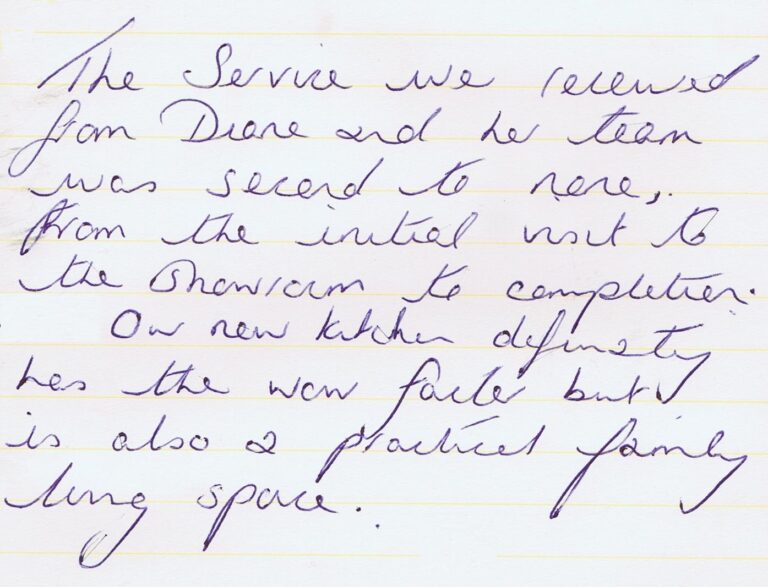 The Service we received
from Diane and her team
was second to none,
from the initial visit to
the showroom to completion.
Our new kitchen definately
has the wow factor but
is also a practical family
living space.